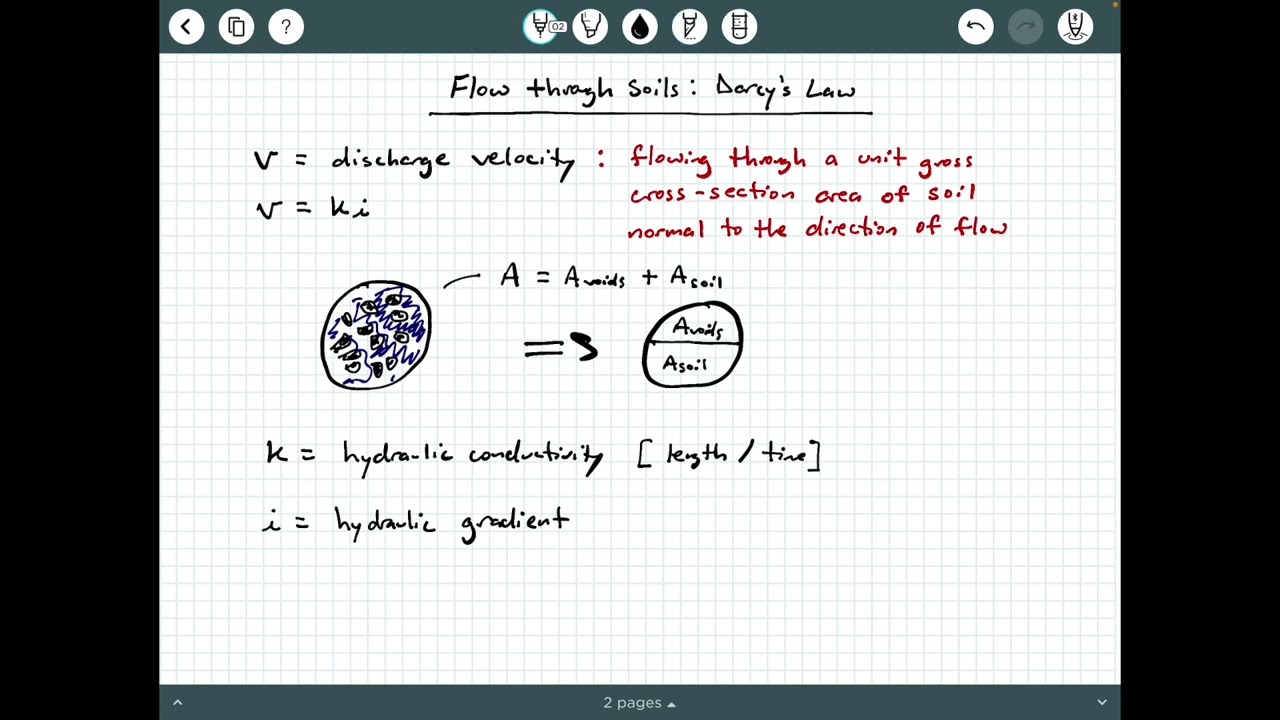 02
Flow through Soils: Darcy's Law
v = discharge velocity : flowing through a unit gross
cross-section area of soil
normal to the direction of flow
v = ki
A = Avoids + Asoil
Avoids
Asoil
k = hydraulic conductivity [length/time]
i = hydraulic gradient
2 pages